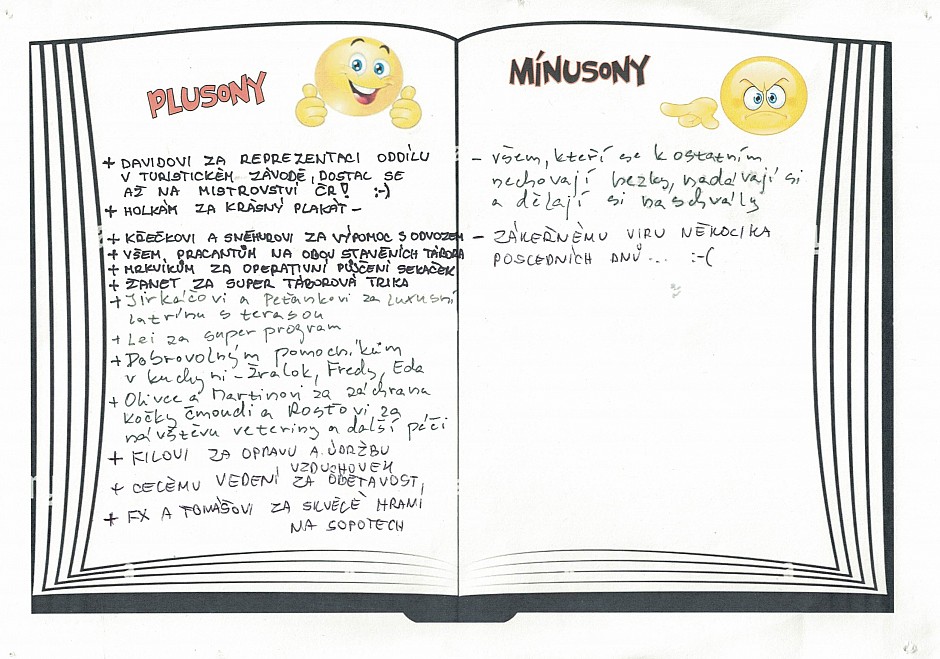 PLUSONY
+ DAVIDOVI ZA REPREZENTACI ODDÍLU
V TURISTICKÉM ZÁVODĚ, DOSTAL SE
AŽ NA MISTROVSTVÍ ČR! :-)
+ HOLKÁM ZA KRÁSNÝ PLAKÁT -
+ KŘEČKOVI A SNĚHUROVI ZA VÝPOMOC S ODVOZEM
+ VŠEM, PRACANTŮM NA OBOU STAVĚNÍCH TÁBORA
+ MRKVIKŮM ZA OPERATIVNÍ PŮJČENÍ SEKAČEK
+ ŽANET ZA SUPER TÁBOROVÁ TRIKA
+ Jirkáčovi a Peťánkovi za luxusní
latrínu s terasou
+ Lei za super program
+ Dobrovolným pomocníkům
v kuchyni - Žralok, Fredy, Eda
+ Olivce a Martinovi za záchranu
kočky Čmoudi a Rosťovi za
návštěvu veteriny a další péči
+ KILOVI ZA OPRAVU A ÚDRŽBU
VZDUCHOVEK
+ CELÉMU VEDENÍ ZA OBĚTAVOST,
+ FX A TOMÁŠOVI ZA SKVĚLÉ HRANÍ
NA SOPOTECH
MÍNUSONY
- všem, kteří se k ostatním
nechovají hezky, nadávají si
a dělají si naschvály
- ZÁKEŘNÉMU VIRU NĚKOLIKA
POSLEDNÍCH DNŮ... :-(